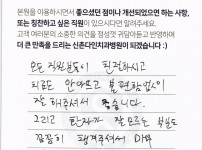 본원을 이용하시면서 좋으셨던 점이나 개선되었으면 하는 사항,
또는 칭찬하고 싶은 직원이 있으시다면 알려주세요.
고객 여러분의 소중한 의견을 정성껏 귀담아듣고 반영하며
더 큰 만족을 드리는 신촌다인치과병원이 되겠습니다 :)
모든 직원분들이 친절하시고
치료도 안아프고 불편함없이
잘 해주셔서 좋습니다.
그리고 환자가 잘 모르는 부분도
꼼꼼히 챙겨주셔서